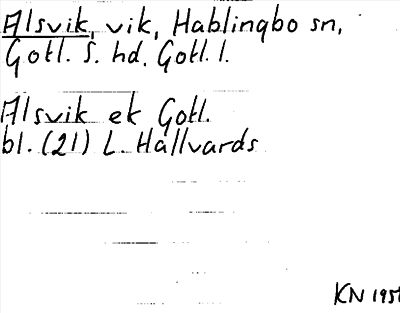 Alsvik, vik, Hablingbo sn,
Gotl. S. hd, Gotl. l.
Alsvik ek Gotl.
bl. (21) L. Hallvards
KN